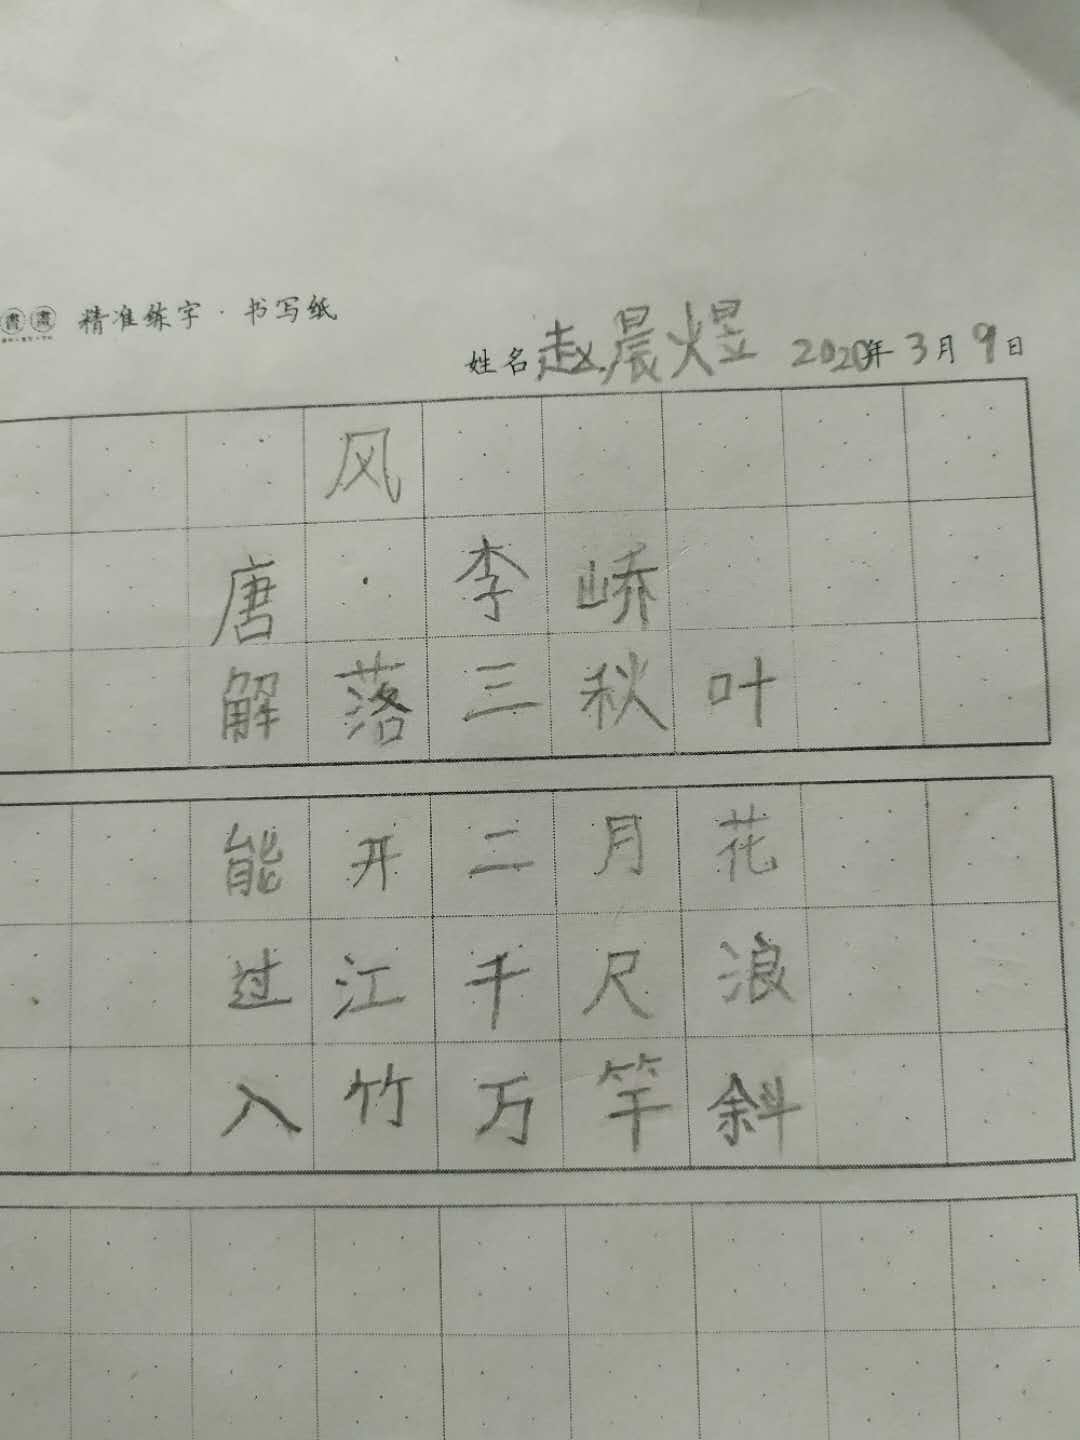 書 精准练字·书写纸
姓名赵晨煜 2020年3月9日
风
唐·李峤
解落三秋叶
能开二月花
过江千尺浪
入竹万竿斜